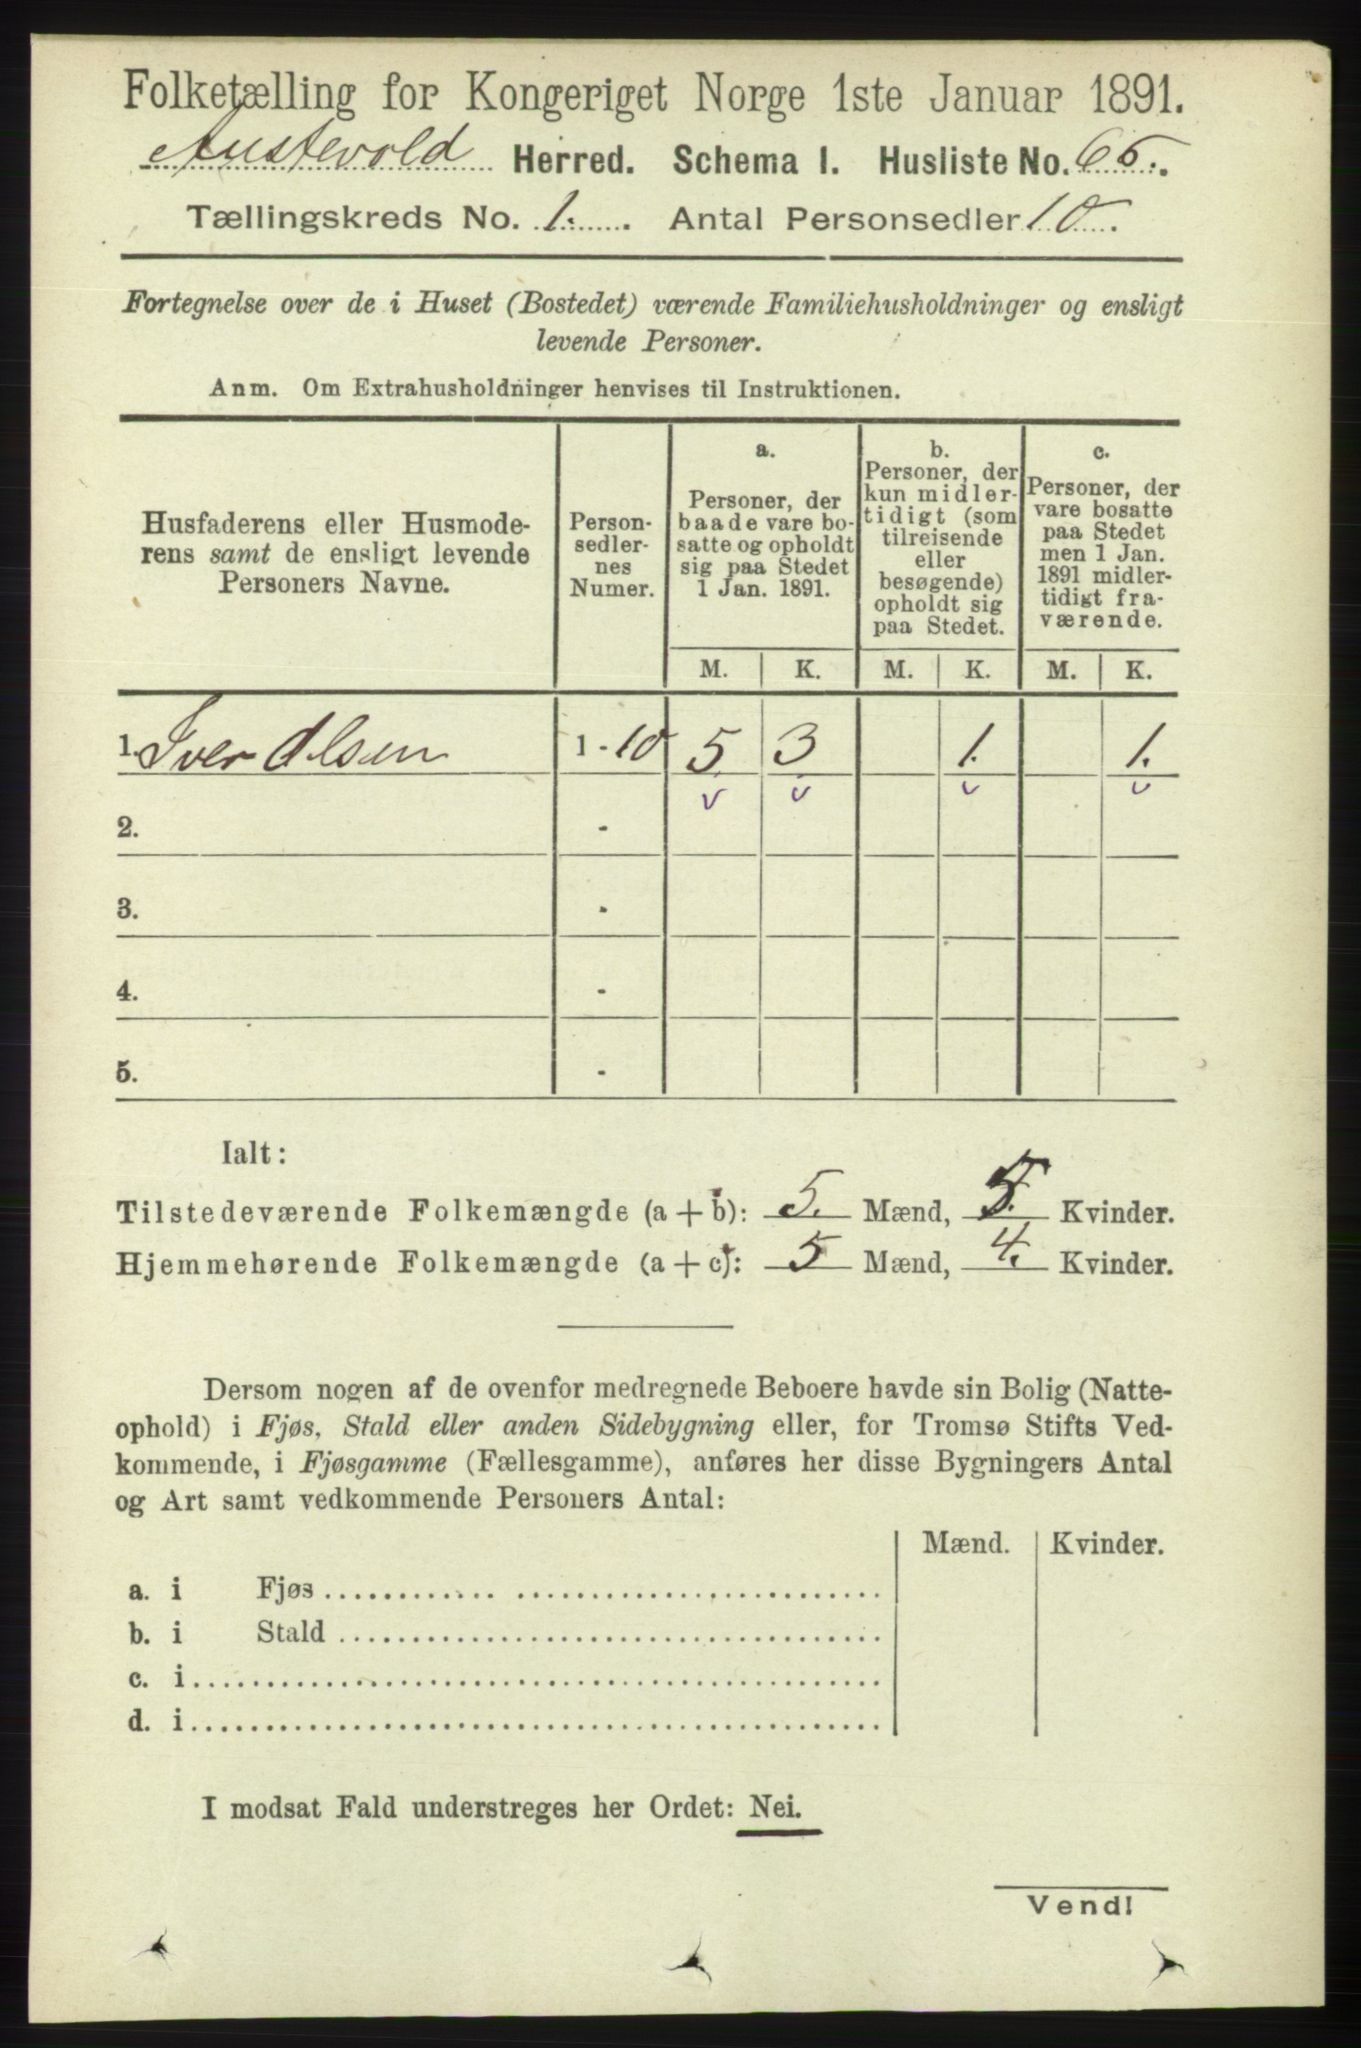 Folketælling for Kongeriget Norge 1ste Januar 1891.
Austevold Herred. Schema I. Husliste No. 66.
Tællingskreds No. 1. Antal Personsedler 10.
Fortegnelse over de i Huset (Bostedet) værende Familiehusholdninger og ensligt
levende Personer.
Anm. Om Extrahusholdninger henvises til Instruktionen.
Husfaderens eller Husmode-
rens samt de ensligt levende
Personers Navne.
Person-
sedler-
nes
Numer.
a.
Personer, der
baade vare bo-
satte og opholdt
sig paa Stedet
1 Jan. 1891.
b.
Personer, der
kun midler-
tidigt (som
tilreisende
eller
besøgende)
opholdt sig
paa Stedet.
c.
Personer, der
vare bosatte
paa Stedet
men 1 Jan.
1891 midler-
tidigt fra-
værende.
M. K. M. K. M. K.
1. Iver Olsen 1 - 10 5 3 1. 1.
v v v v
2. -
3. -
4. -
5. -
Ialt:
Tilstedeværende Folkemængde (a + b): 5. Mænd, Kvinder.
Hjemmehørende Folkemængde (a + c): 5 Mænd, 4. Kvinder.
Dersom nogen af de ovenfor medregnede Beboere havde sin Bolig (Natte-
ophold) i Fjøs, Stald eller anden Sidebygning eller, for Tromsø Stifts Ved-
kommende, i Fjøsgamme (Fællesgamme), anføres her disse Bygningers Antal
og Art samt vedkommende Personers Antal:
Mænd. Kvinder.
a. i Fjøs
b. i Stald
c. i
d. i
I modsat Fald understreges her Ordet: Nei.
Vend!